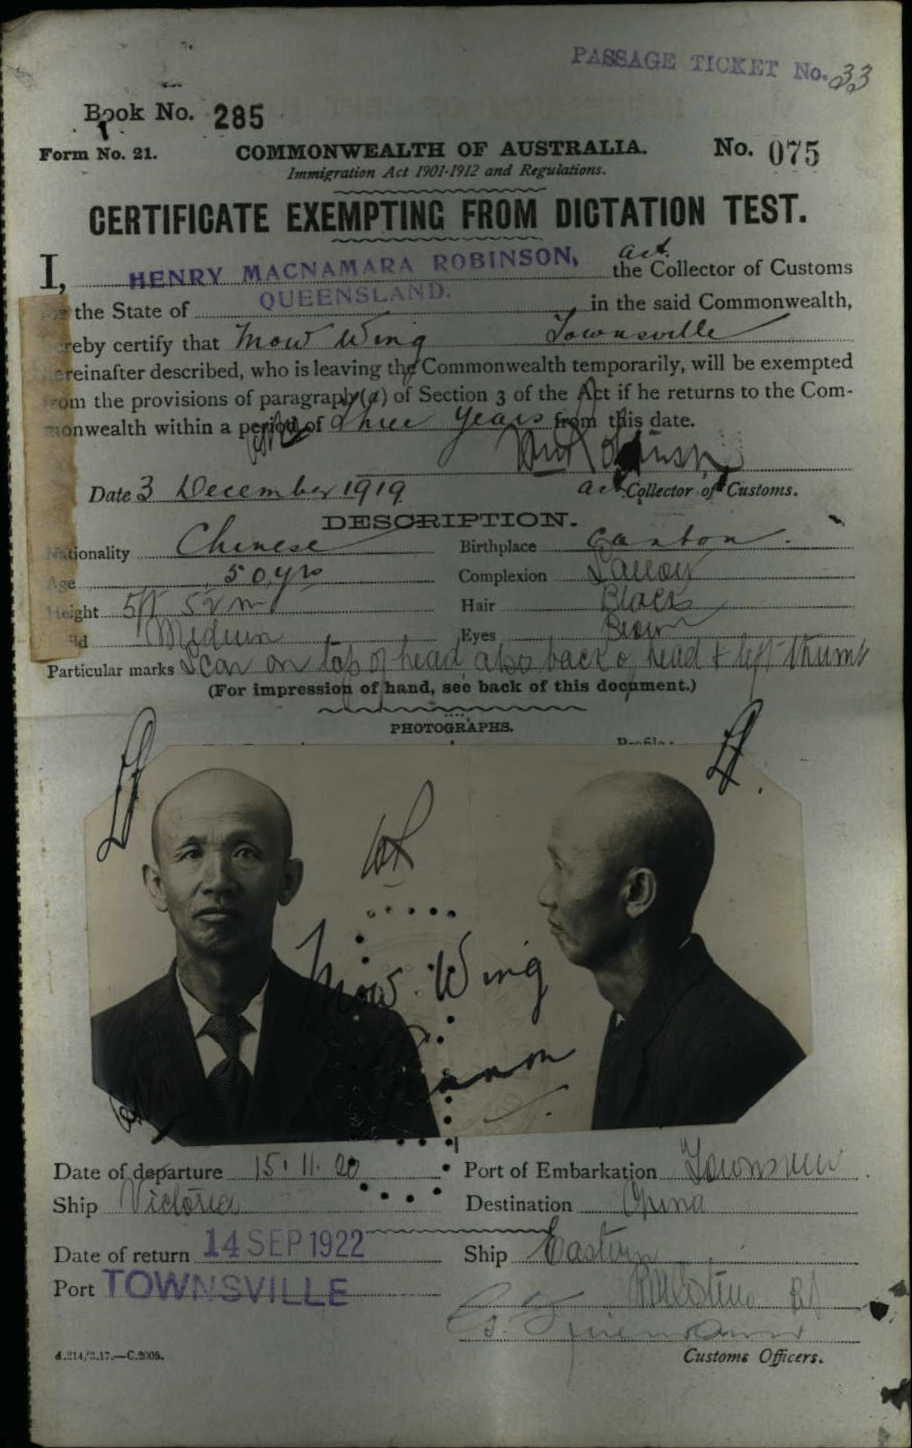 PASSAGE TICKET No. 33
Book No. 285
Form No. 21. COMMONWEALTH OF AUSTRALIA. No. 075
Immigration Act 1901-1912 and Regulations.
CERTIFICATE EXEMPTING FROM DICTATION TEST.
act.
I, HENRY MACNAMARA ROBINSON, the Collector of Customs
the State of QUEENSLAND. in the said Commonwealth,
reby certify that Mow Wing Townsville
ereinafter described, who is leaving the Commonwealth temporarily, will be exempted
om the provisions of paragraph (a) of Section 3 of the Act if he returns to the Com-
monwealth within a period of Three Years from this date.
Date 3 December 1919 act. Collector of Customs.
DESCRIPTION.
Nationality Chinese Birthplace Canton.
Age 50 yrs Complexion Sallow
Height 5ft 5½ in Hair Black
ld Medium Eyes Brown
Particular marks Scar on top of head, also back of head & left thumb
(For impression of hand, see back of this document.)
PHOTOGRAPHS.
Profile:
WR
Mow Wing
Date of departure 15.11.20 Port of Embarkation Townsville
Ship Victoria Destination China
Date of return 14 SEP 1922 Ship Eastern
Port TOWNSVILLE
d.214/3.17.—C.2005. Customs Officers.